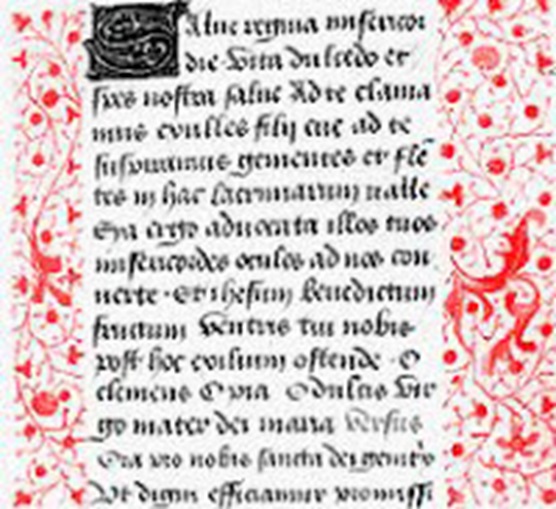 Salue regina misericor
die vita dulcedo et
spes nostra salue Ad te clama
mus exulles filij eue ad te
suspiramus gementes et flē
tes in hac lacrimarum ualle
Eya ergo aduocata illos tuos
misericordes oculos ad nos con
uerte · Et ihesum benedictum
fructum ventris tui nobis
post hoc exilium ostende · O
clemens O pia O dulcis vir
go mater dei maria versus
Ora pro nobis sancta dei genit'x
Vt digni efficiamur promissi